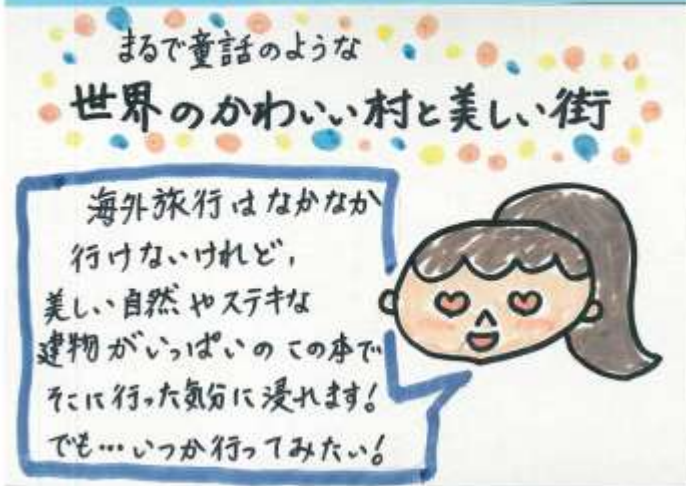 まるで童話のような
世界のかわいい村と美しい街
海外旅行はなかなか
行けないけれど，
美しい自然やステキな
建物がいっぱいのこの本で
そこに行った気分に浸れます！
でも…いつか行ってみたい！